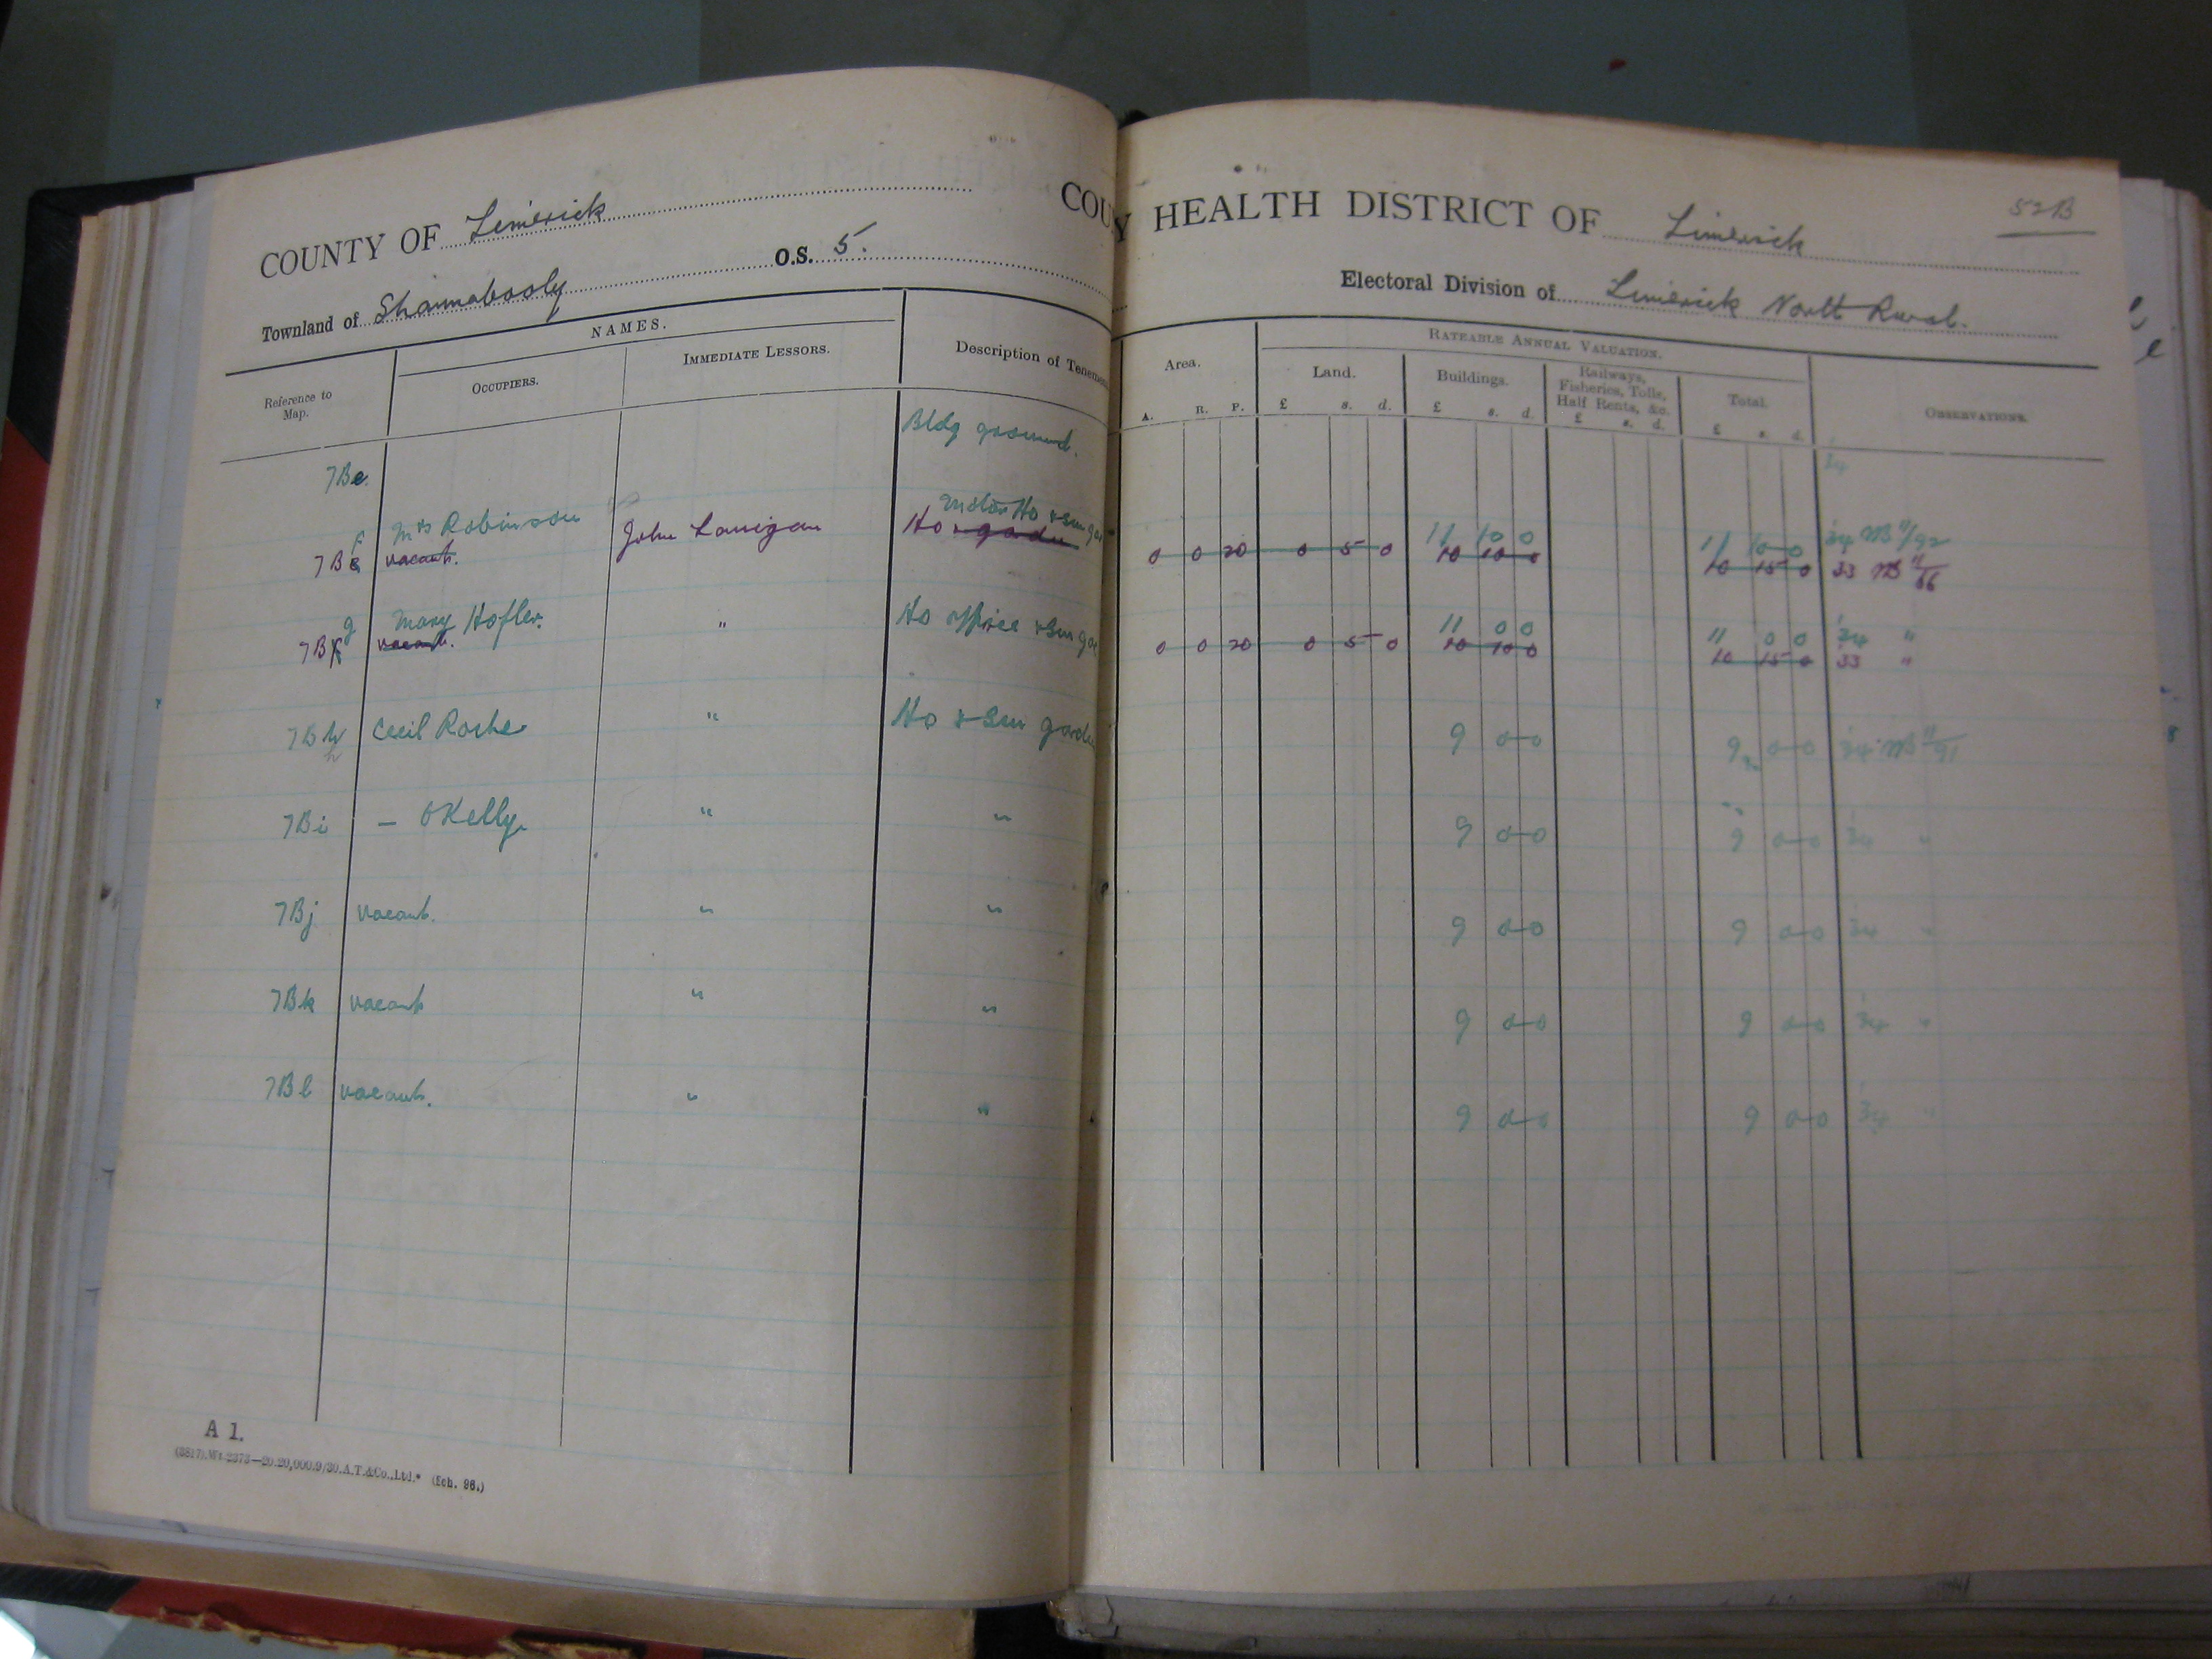 52B
COUNTY OF Limerick COUNTY HEALTH DISTRICT OF Limerick
Townland of Shannabooly O.S. 5. Electoral Division of Limerick North Rural.
NAMES. RATEABLE ANNUAL VALUATION.
Reference to Map. OCCUPIERS. IMMEDIATE LESSORS. Description of Teneme Area. Land. Buildings. Railways, Fisheries, Tolls, Half Rents, &c. Total. OBSERVATIONS.
A. R. P. £ s. d. £ s. d. £ s. d. £ s. d.
7Be Bldg ground. 34
f Mrs Robinson Motor Ho & sm ga 11 10 0 11 10 0 34 MB 11/92
7Be vacant. John Lanigan Ho & garden 0 0 20 0 5 0 10 10 0 10 15 0 33 MB 11/66
g Mary Hofler. Ho office & sm ga 11 0 0 11 0 0 34 "
7Bf vacant. " 0 0 20 0 5 0 10 10 0 10 15 0 33 "
7Bh Cecil Roche " Ho & sm garde 9 0 0 9 0 0 34 MB 11/91
h
7Bi — OKelly " " 9 0 0 9 0 0 34 "
7Bj vacant. " " 9 0 0 9 0 0 34 "
7Bk vacant " " 9 0 0 9 0 0 34 "
7Bl vacant. " " 9 0 0 9 0 0 34 "
A 1.
(5817).Wt.2373—20.20,000.9/30.A.T.&Co.,Ltd.* (Sch. 96.)